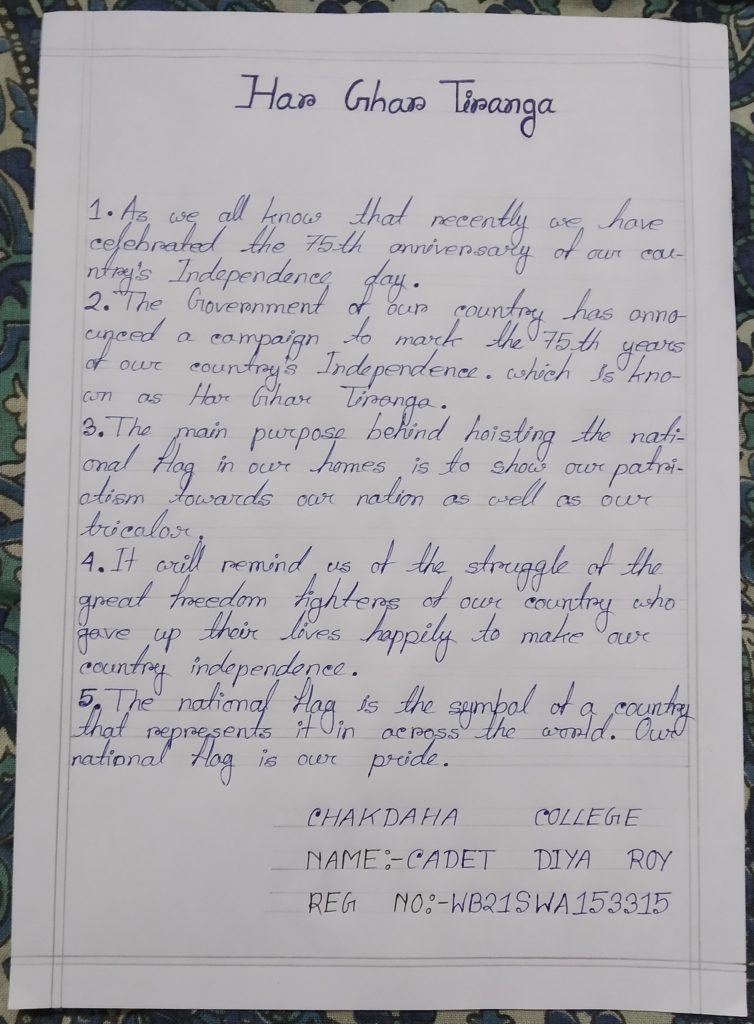 Har Ghar Tiranga
1. As we all know that recently we have
celebrated the 75th anniversary of our cou-
ntry's Independence day.
2. The Government of our country has anno-
unced a campaign to mark the 75th years
of our country's Independence. which is kno-
wn as Har Ghar Tiranga.
3. The main purpose behind hoisting the nati-
onal flag in our homes is to show our patri-
otism towards our nation as well as our
tricolor.
4. It will remind us of the struggle of the
great freedom fighters of our country who
gave up their lives happily to make our
country independence.
5. The national flag is the symbol of a country
that represents it in across the world. Our
national flag is our pride.
CHAKDAHA COLLEGE
NAME:-CADET DIYA ROY
REG NO:-WB21SWA153315